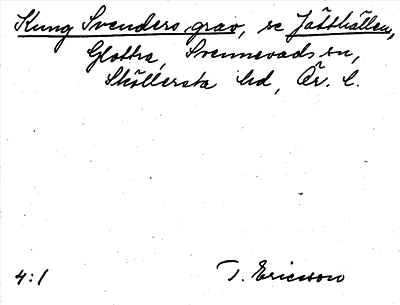 Kung Svenders grav, se Jätthällen,
Glottra, Svennevads sn,
Sköllersta hd, Ör. l.
4:1 T. Ericsson